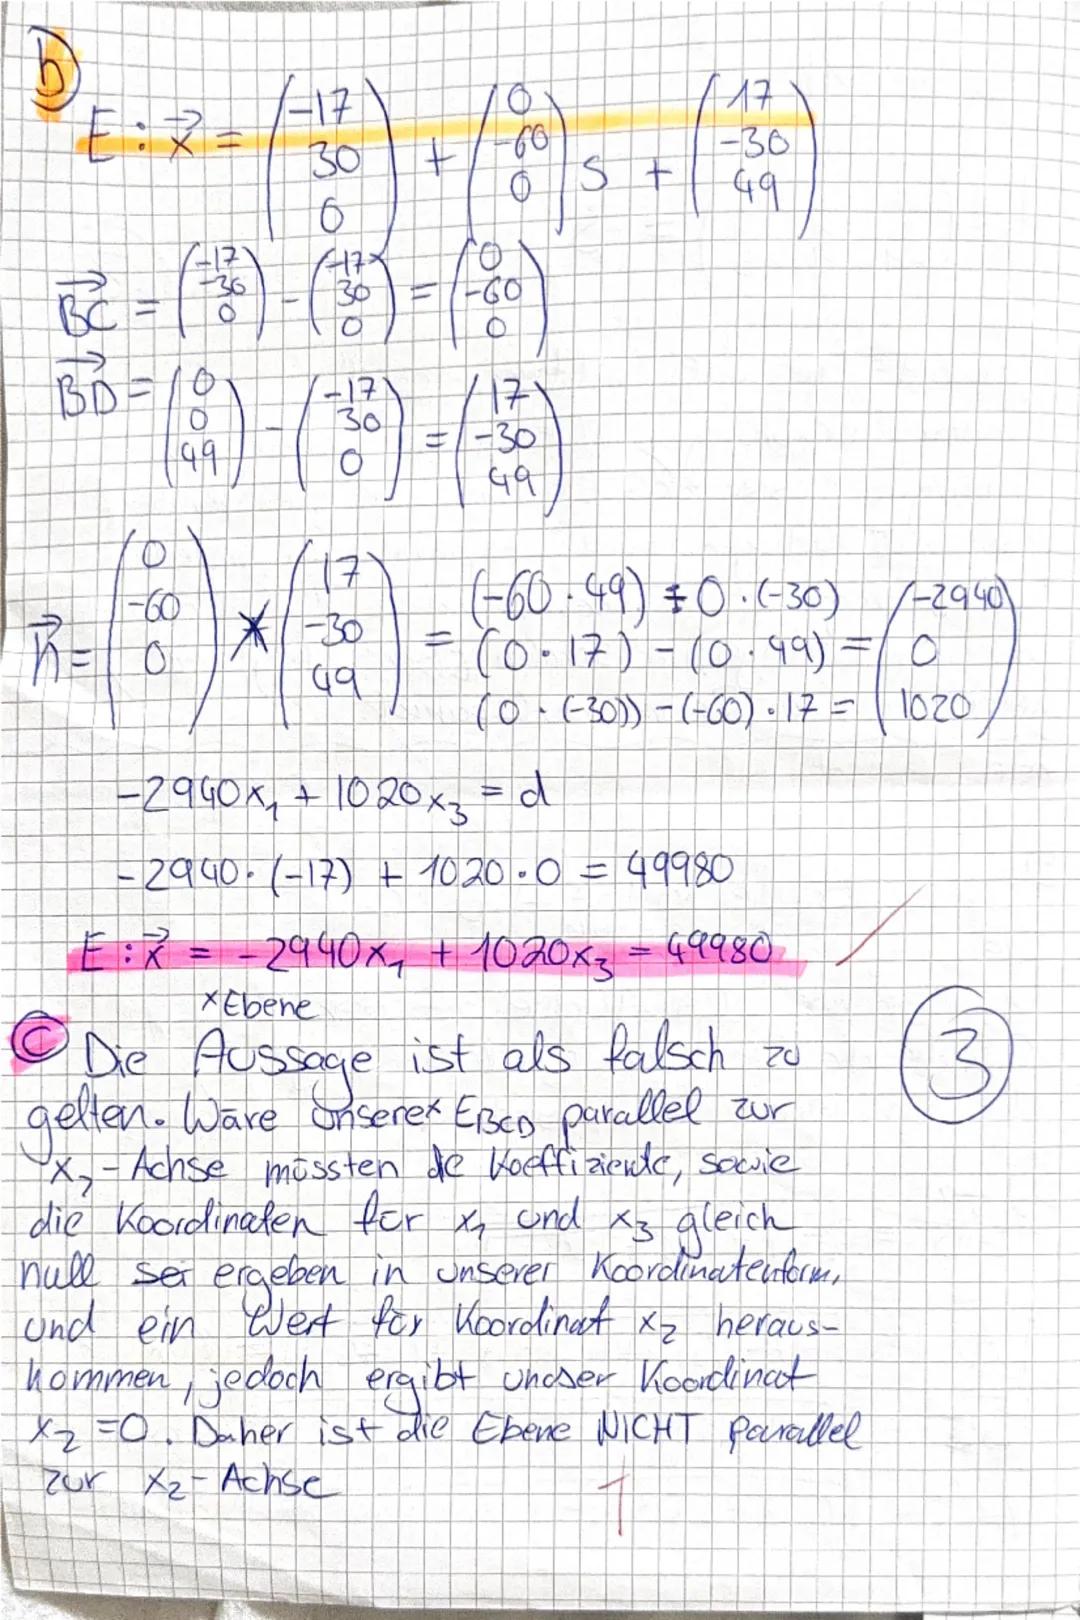 b)
E: x⃗ = (-17 30 0) + (0 -60 0) s + (17 -30 49)
BC⃗ = (-17 -30 0) - (-17 30 0) = (0 -60 0)
BD⃗ = (0 0 49) - (-17 30 0) = (17 -30 49)
n⃗ = (0 -60 0) × (17 -30 49) = (-60 · 49) - 0 · (-30)
(0 · 17) - (0 · 49) = (-2940 0 1020)
(0 · (-30)) - (-60) · 17 =
-2940x₁ + 1020x₃ = d
-2940 · (-17) + 1020 · 0 = 49980
E: x⃗ = -2940x₁ + 1020x₃ = 49980
×Ebene
c) Die Aussage ist als falsch zu
gelten. Wäre unsere× EBCD parallel zur
x₂-Achse müssten die Koeffiziente, sowie
die Koordinaten für x₁ und x₃ gleich
null sei ergeben in unserer Koordinatenform,
und ein Wert für Koordinat x₂ heraus-
kommen, jedoch ergibt undser Koordinat
x₂ = 0. Daher ist die Ebene NICHT parallel
zur x₂-Achse
3
1